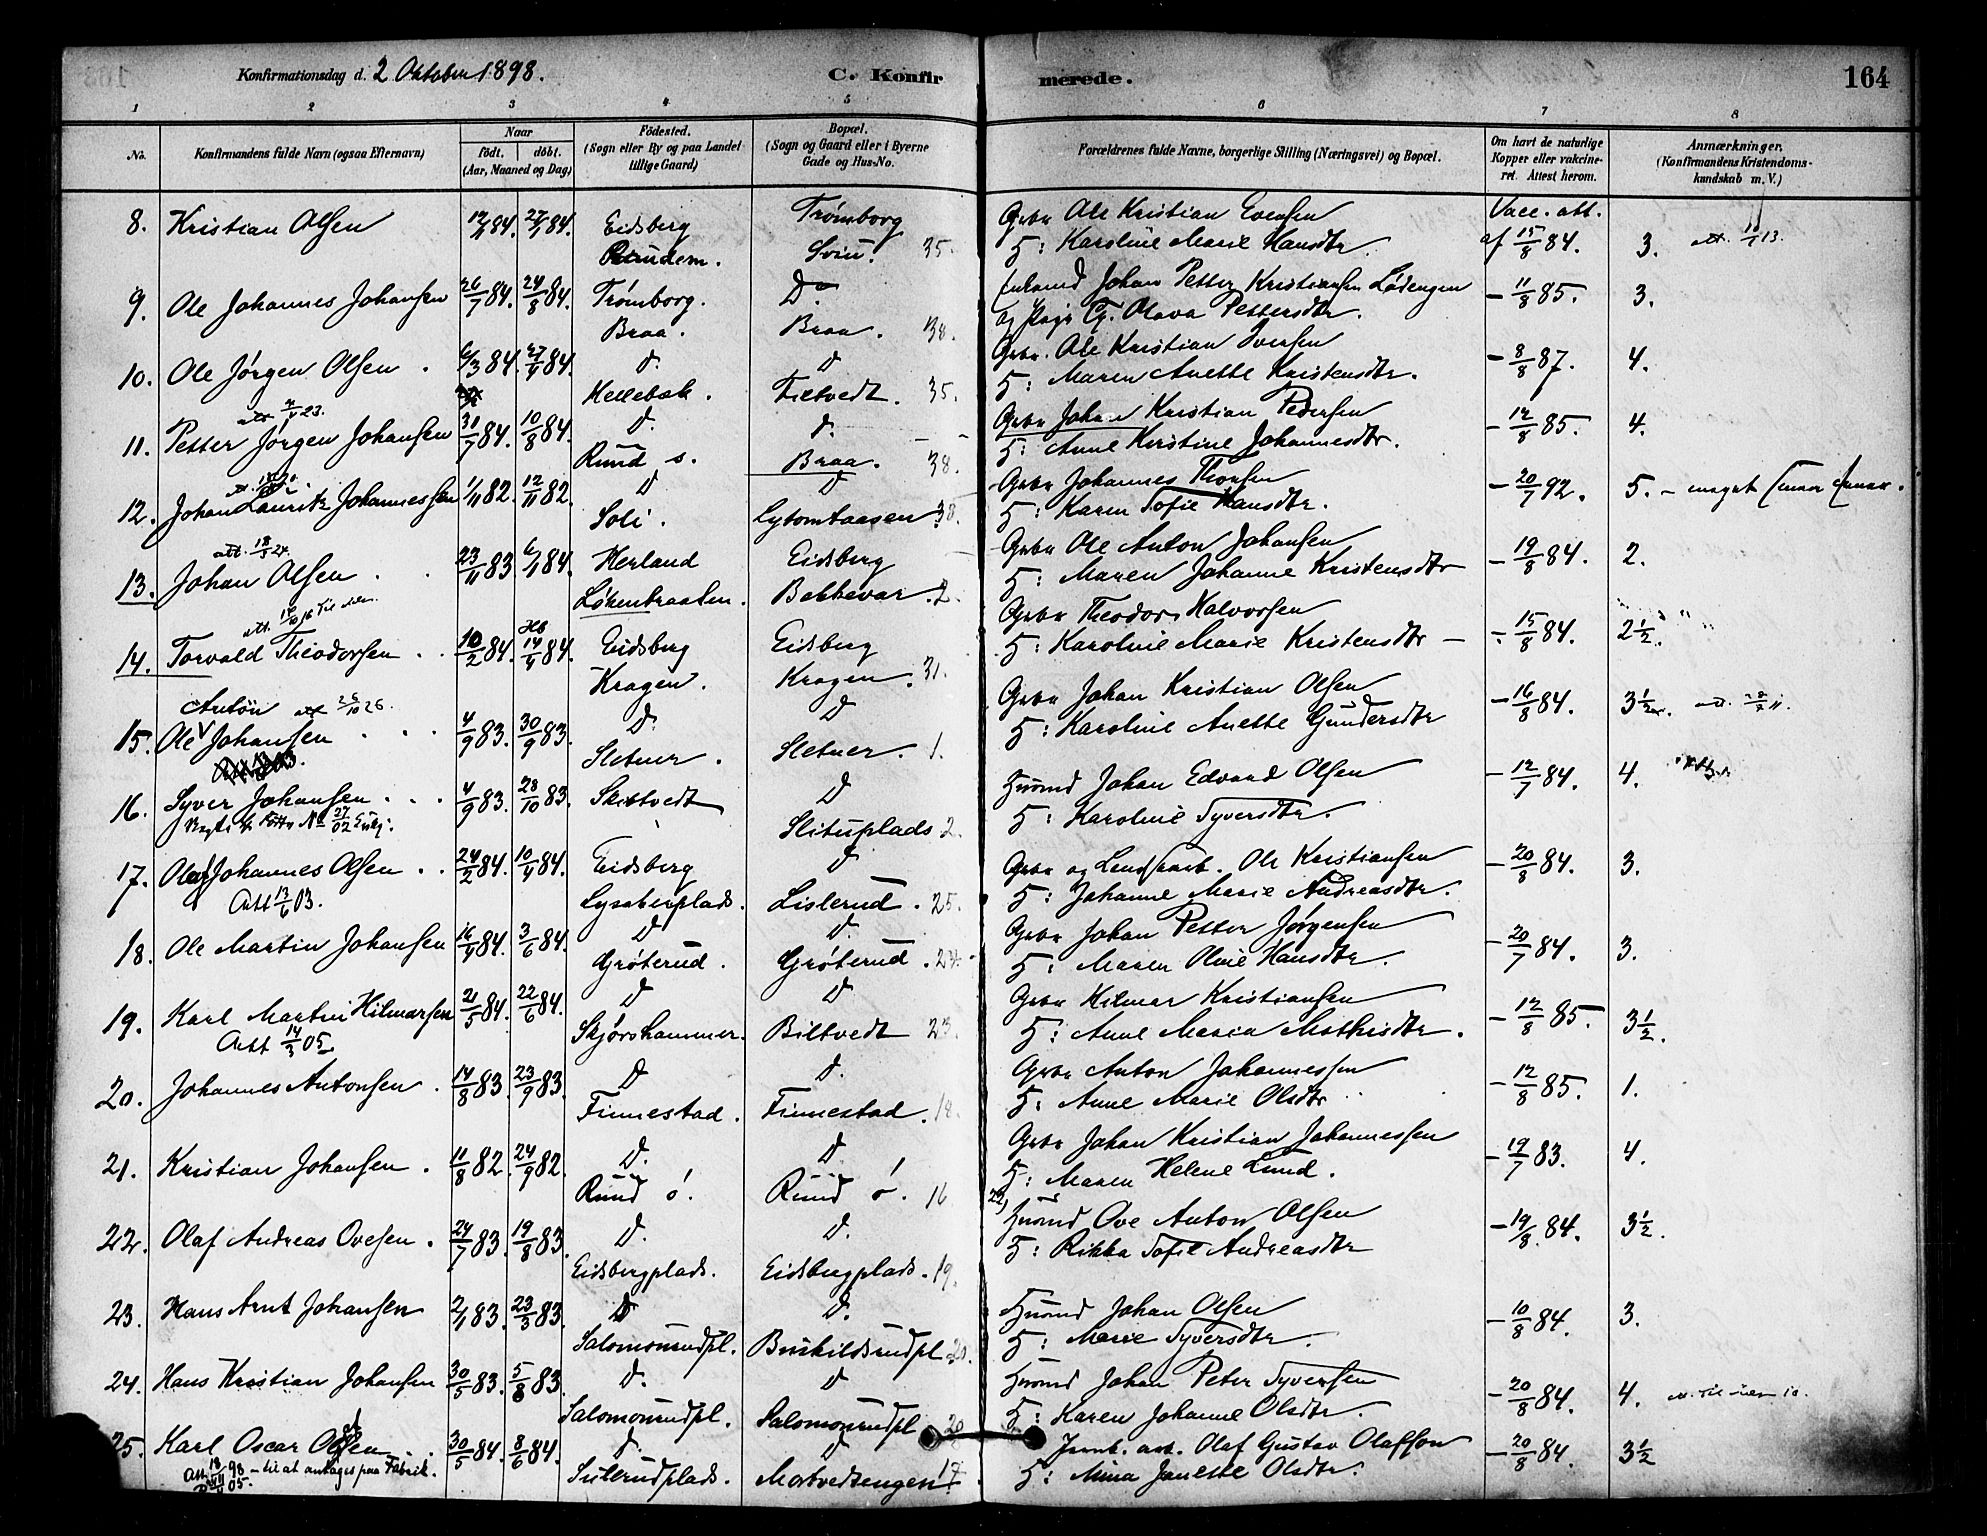 Konfirmationsdag d. 2 Oktober 1898. C. Konfir merede. 164
1 2 3 4 5 6 7 8
No. Konfirmandens fulde Navn (ogsaa Efternavn) Naar födt. döbt. (Aar, Maaned og Dag) Födested. (Sogn eller By og paa Landet tillige Gaard) Bopæl. (Sogn og Gaard eller i Byerne Gade og Hus-No. Forældrenes fulde Navne, borgerlige Stilling (Næringsvei) og Bopæl. Om havt de naturlige Kopper eller vakcineret. Attest herom. Anmærkninger. (Konfirmandens Kristendomskundskab m. V.)
8. Kristian Olsen 84. 84. Eidsberg Trömborg Gbr Ole Kristian Evensen Vacc. att.
Svin. 35. H: Karoline Marie Hansdtr. af 15/8 84. 3.
9. Ole Johannes Johansen 26/7 84. 24/8 84. Trömborg. D. Johan Petter Kristiansen Lödengen - 11/8 85. 3.
Braa. Braa. 38. og Pige Olava Pettersdtr.
10. Ole Jörgen Olsen. 6/3 84. 27/4 84. D. D Gbr. Ole Kristian Iversen - 8/8 87. 4.
Hellebæk. Tiltvedt. 35. H: Maren Anette Kristensdtr.
11. Petter Jörgen Johansen 31/7 84. 10/8 84. D. D. Gbr Johan Kristian Pedersen - 12/8 85. 4.
Rund s. Braa. 38. H: Anne Kirstine Johannesdtr.
12. Johan Lauritz Johannessen 1/11 82. 12/11 82. D D Gbr Johannes Thorsen - 20/7 92. 5. - meget
Soli. 38. H: Karen Sofie Hansdtr.
att. 18/5 24.
13. Johan Olsen. 23/11 83 6/1 84. Herland Eidsberg Gbr Ole Anton Johansen - 19/8 84. 2.
Lökenbraaten. Bekkevar. 2. H: Maren Johanne Kristensdtr
14. Torvald Theodorsen. 10/2 84. 14/4 84. Eidsberg Eidsberg Gbr Theodor Halvorsen - 15/8 84. 2 1/2.
Kragen. Kragen. 31. H: Karoline Marie Kristensdtr -
Anton att 25/10 26.
15. Ole Johansen 4/9 83. 30/9 83. D. D Gbr Johan Kristian Olsen - 16/8 84. 3 1/2.
Sletner. Sletner. 1. H: Karoline Anette Gundersdtr
16. Syver Johansen. 4/9 83. 28/10 83. Skiptvedt D Husmd Johan Edvard Olsen - 12/7 84. 4.
Slituplads 2. H: Karoline Syversdtr.
17. Olaf Johannes Olsen. 24/2 84. 10/4 84. Eidsberg D Gbr og Landsarb. Ole Kristiansen - 20/8 84. 3.
Att 13/6 03. Lysaberplads. Lislerud. 25. H: Johanne Marie Andreasdtr.
18. Ole Martin Johansen 16/4 84. 3/6 84. D D. Gbr Johan Petter Jörgensen - 20/7 84. 3.
Gröterud. Gröterud. 24. H: Maren Oline Hansdtr.
19. Karl Martin Hilmarsen 21/5 84. 22/6 84. D D Gbr Hilmar Kristiansen - 12/8 85. 3 1/2.
Att 14/3 05. Skjörshammer. Biltvedt 23. H: Anne Maria Mathisdtr.
20. Johannes Antonsen. 14/8 83. 23/9 83. D D. Gbr Anton Johannessen - 12/8 85. 1.
Finnestad. Finnestad. 18. H: Anne Marie Olsdtr
21. Kristian Johansen. 11/8 82. 24/9 82. D. D Gbr Johan Kristian Johannessen - 19/7 83. 4.
Rund ö. Rund ö. 16 H: Maren Helene Lund.
22. Olaf Andreas Ovesen. 24/7 83. 19/8 83. D. D. 22) Husmd Ove Anton Olsen - 19/8. 84. 3 1/2.
Eidsbergplads. Eidsbergplads. 19. H: Rikka Sofie Andreasdtr
23. Hans Arnt Johansen 2/1 83. 23/3 83. D D. Husmd Johan Olsen - 10/8 84. 3.
Salomonrudpl. Buskildsrudpl 20. H: Marie Syversdtr.
24. Hans Kristian Johansen 30/5 83. 5/8 83. D. D Husmd Johan Peter Syversen - 20/8 84. 4.
Salomonrudpl. Salomonrudpl 20 H: Karen Johanne Olsdtr.
25. Karl Oscar Olsen. 30/5 84. 8/6 84. D. D Jernb. arb. Olaf Gustav Olafson - 20/8 84. 3 1/2
Att. 98 - til at antages paa Fabrik. Sulerudplads. Mortvedtengen 17. H: Mina Janette Olsdtr.